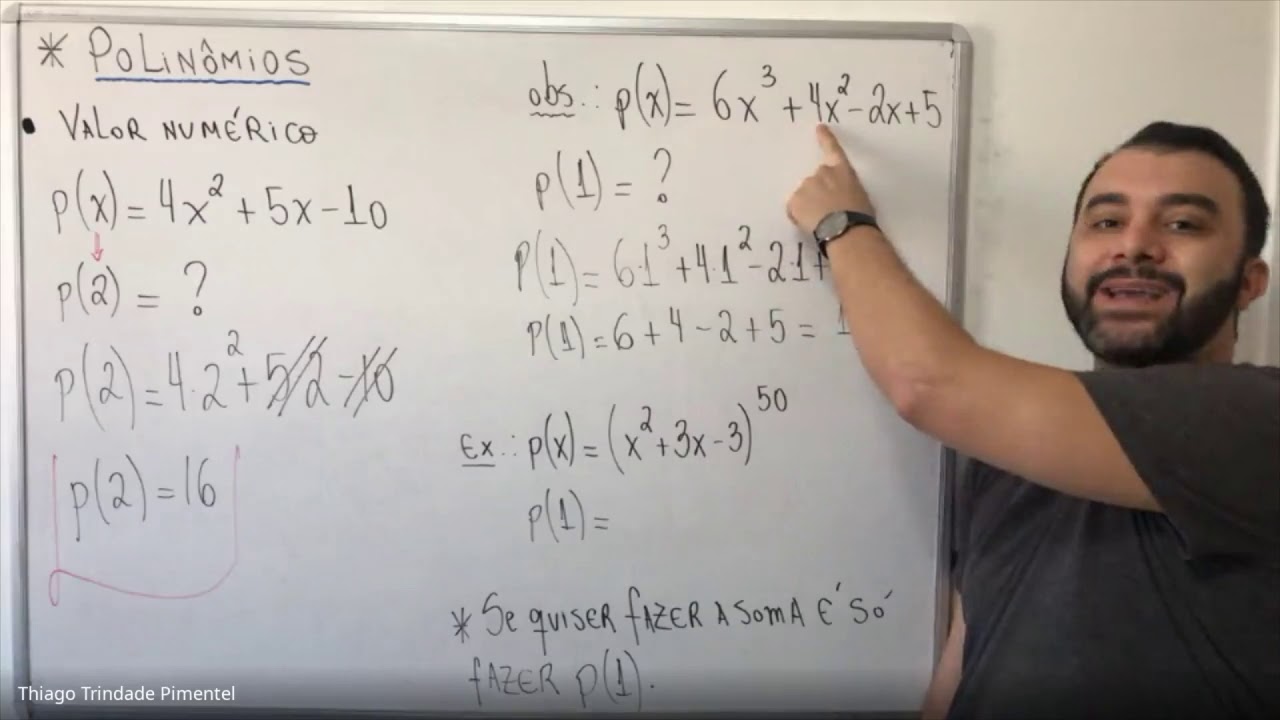 * POLINÔMIOS
• VALOR NUMÉRICO
p(x) = 4x² + 5x - 10
p(2) = ?
p(2) = 4.2² + 5.2 - 10
p(2) = 16
obs.: p(x) = 6x³ + 4x² - 2x + 5
p(1) = ?
P(1) = 6.1³ + 4.1² - 2.1 +
P(1) = 6 + 4 - 2 + 5 = 1
Ex.: p(x) = (x² + 3x - 3)⁵⁰
p(1) =
* Se quiser fazer a soma é só
fazer p(1).
Thiago Trindade Pimentel